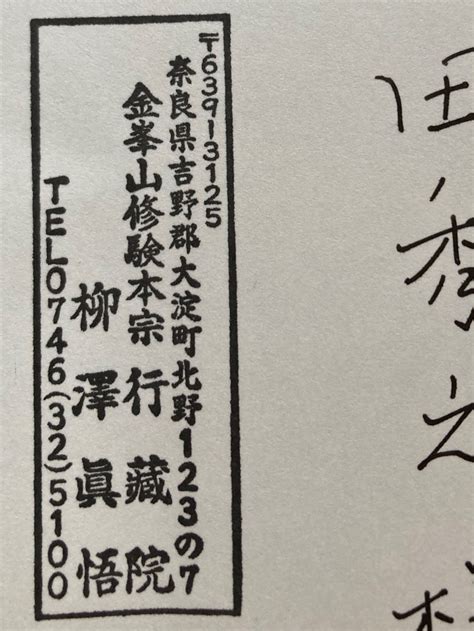 田秀之様
〒639-3125
奈良県吉野郡大淀町北野123の7
金峯山修験本宗 行藏院
柳澤眞悟
TEL0746(32)5100